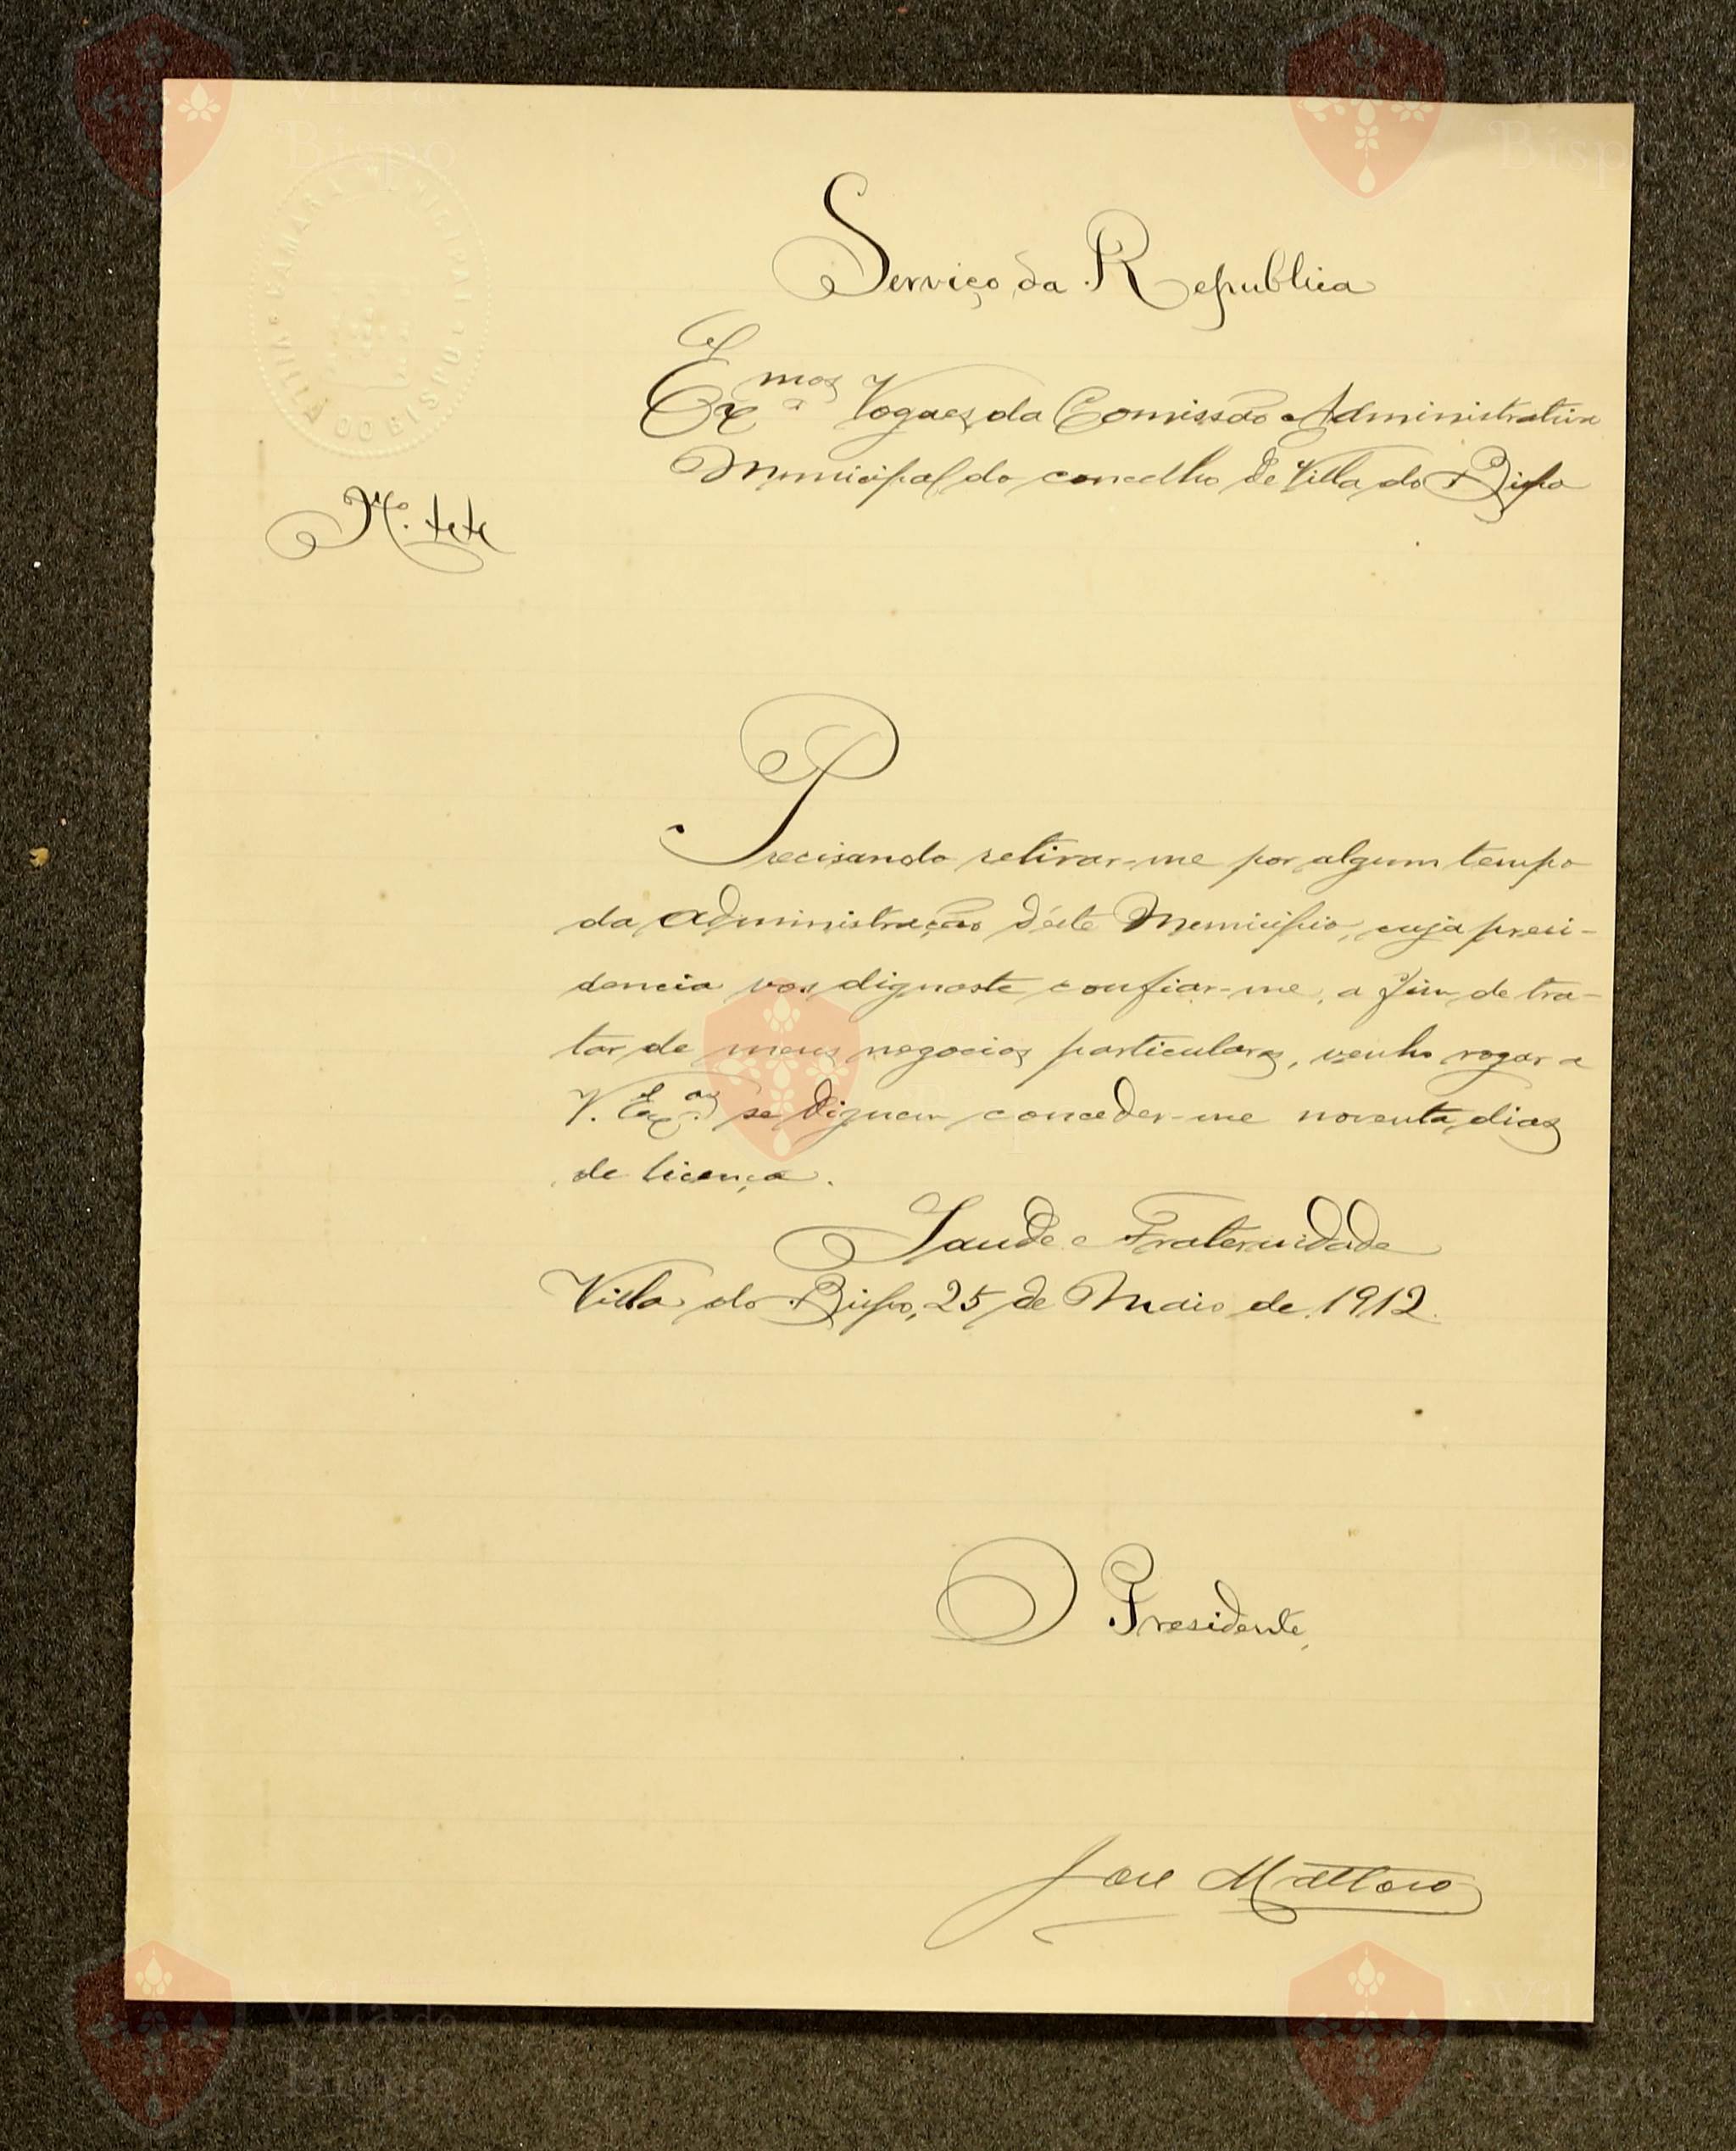 CAMARA MUNICIPAL
VILLA DO BISPO
Serviço da Republica
Exmos Vogaes da Comissão Administrativa
Municipal do concelho de Villa do Bispo
Nº.
Precisando retirar-me por algum tempo
da Administração déste Municipio, cuja presi-
dencia vos dignaste confiar-me, a fim de tra-
tar de meus negocios particulares, venho rogar a
V. Exas. se dignem conceder-me noventa dias
de licença.
Saude e Fraternidade
Villa do Bispo, 25 de Maio de 1912.
O Presidente,
José Mattoso
Vila do
Bispo
Bispo
Vila do
Bispo
Vila do
Bispo